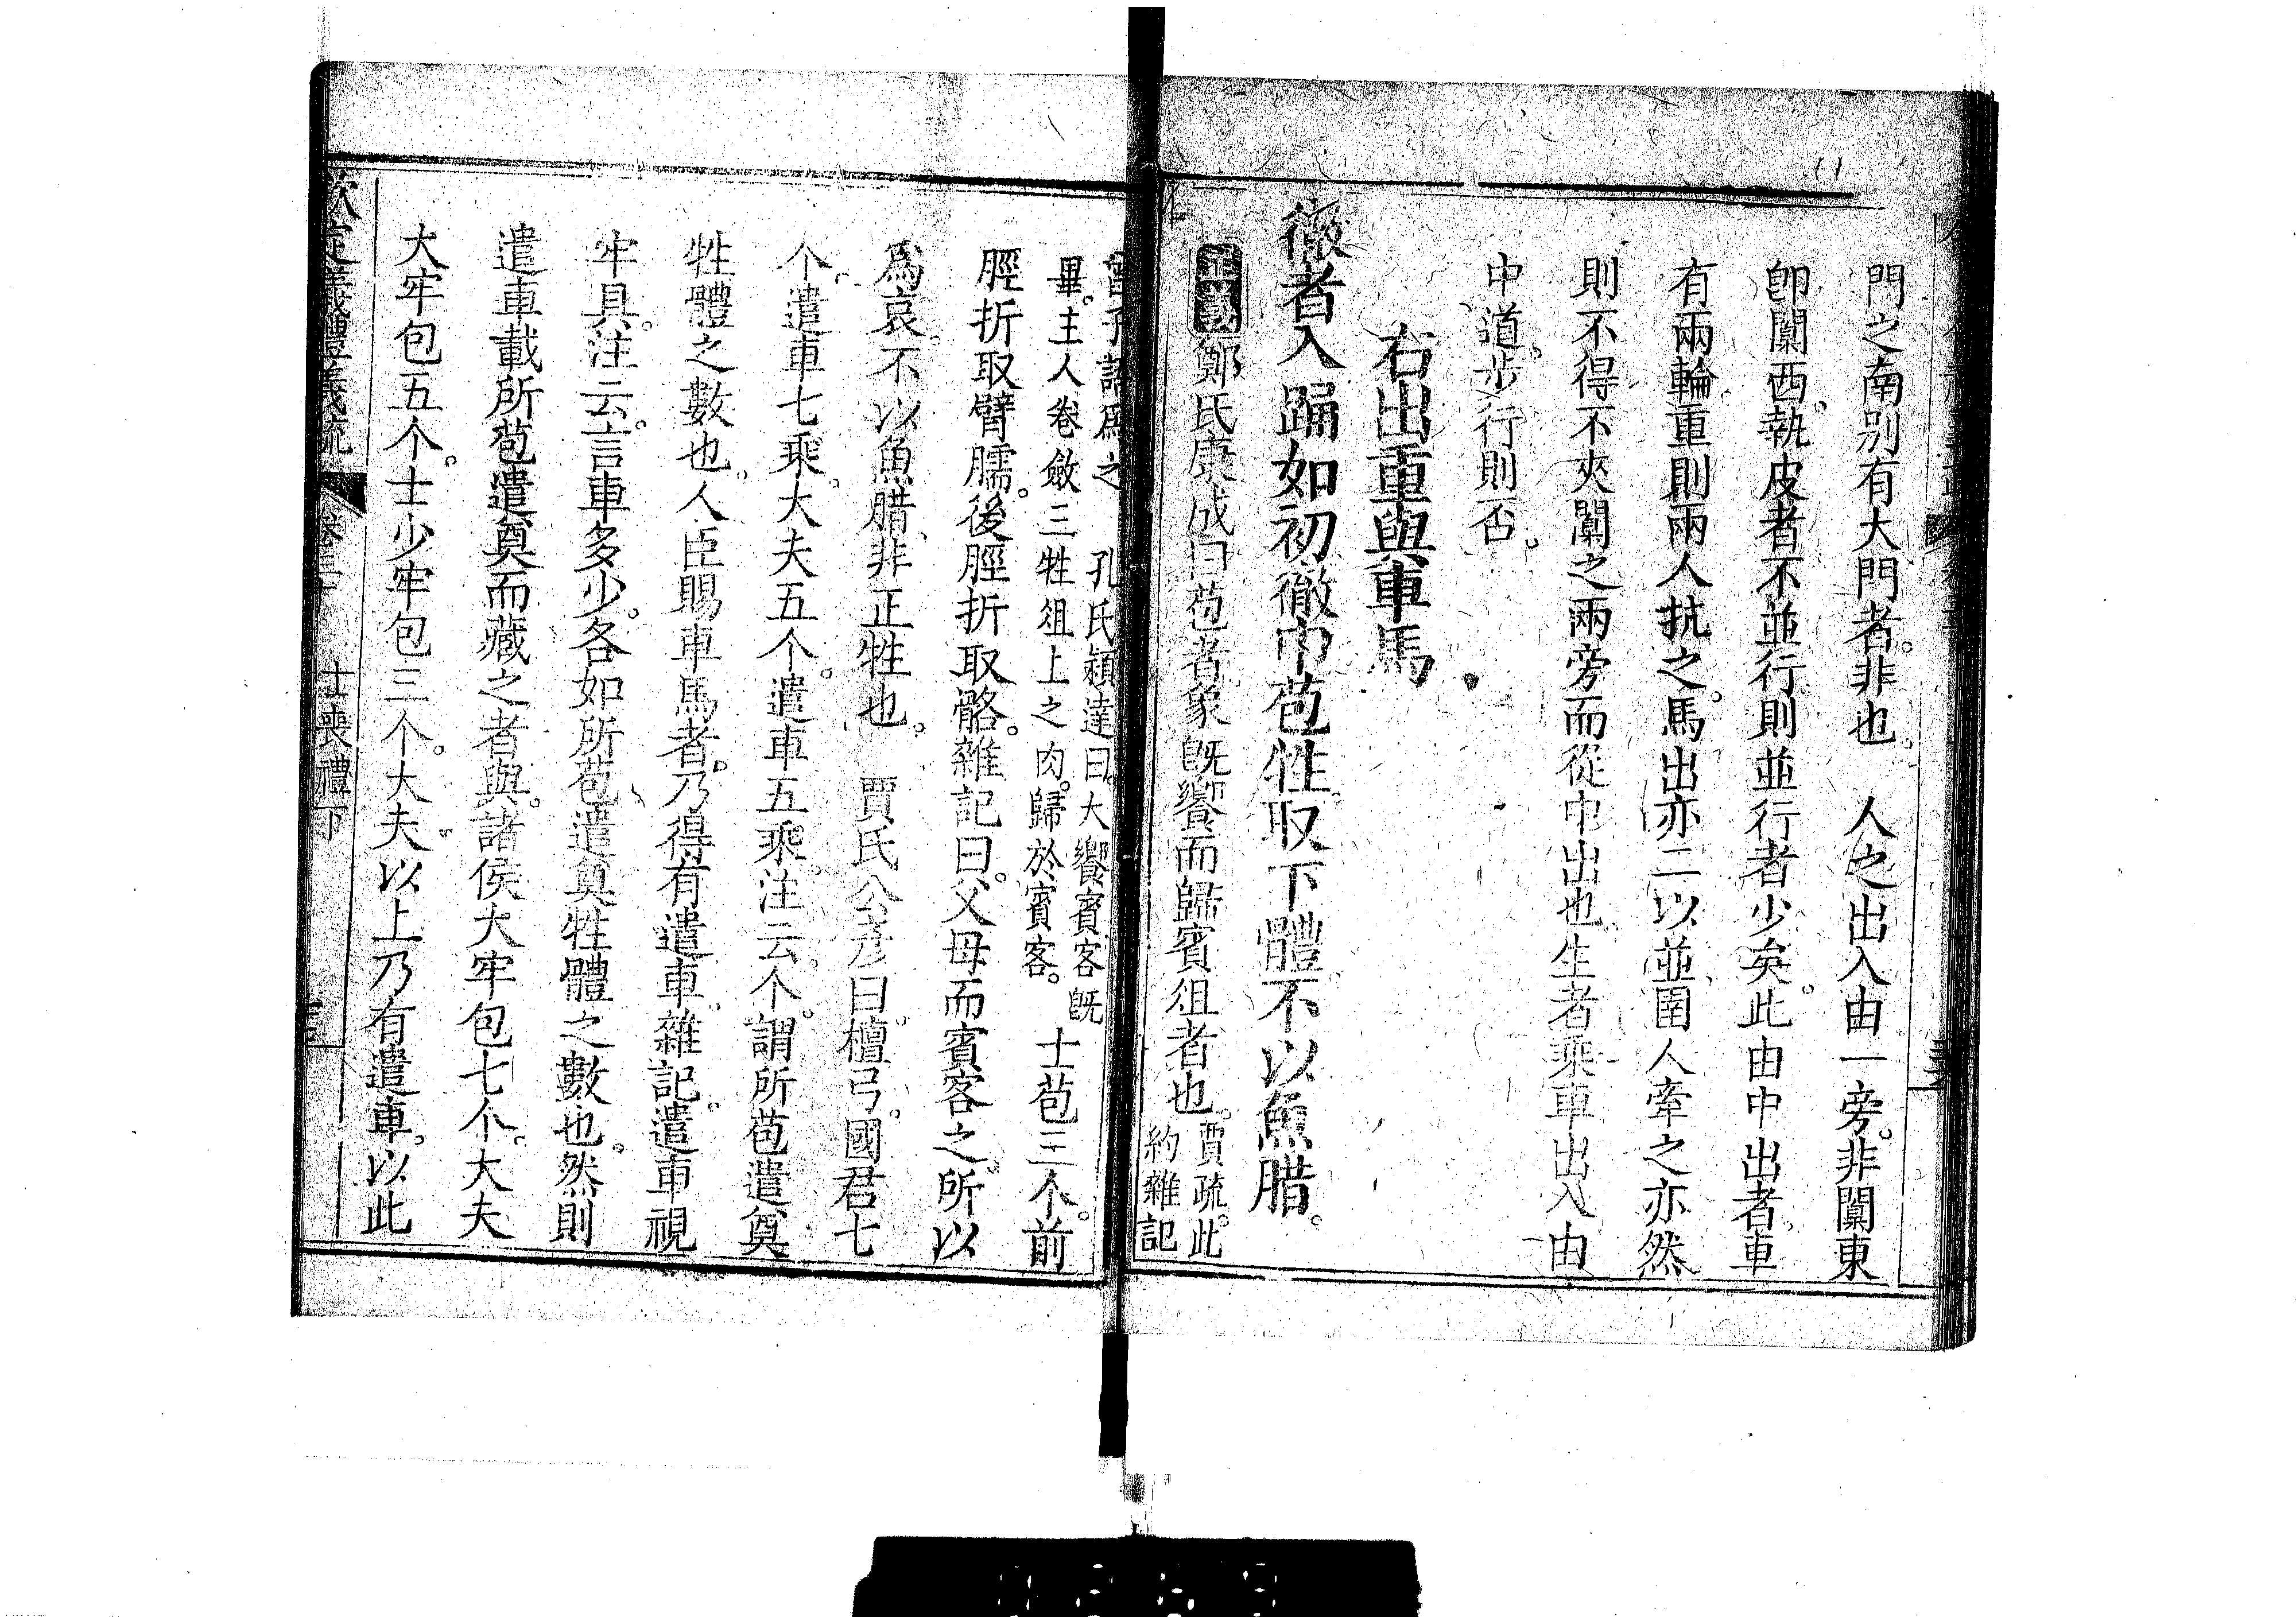 門之南別有大門者。非也。　人之出入由一旁。非闑東
卽闑西。執皮者不並行則並行者少矣。此由中出者。車
有兩輪。重則兩人抗之。馬出亦二以並。圉人牽之亦然
則不得不夾闑之兩旁而從中出也。生者乘車出入由
中道。步行則否。
右出重與車馬
徹者入踊如初徹巾苞牲取下體不以魚腊。
正義鄭氏康成曰苞者象旣饗而歸賓俎者也。賈疏。此
約雜記
曾子語爲之　孔氏穎達曰。大饗賓客旣
畢。主人卷斂三牲俎上之肉。歸於賓客。
士苞三个。前
脛折取臂臑。後脛折取骼。雜記曰。父母而賓客之。所以
爲哀。不以魚腊。非正牲也。　賈氏公彥曰。檀弓。國君七
个。遣車七乘。大夫五个。遣車五乘。注云。个。謂所苞遣奠
牲體之數也。人臣賜車馬者。乃得有遣車。雜記。遣車視
牢具。注云。言車多少。各如所苞遣奠牲體之數也。然則
遣車載所苞遣奠而藏之者與。諸侯大牢包七个。大夫
大牢包五个。士少牢包三个。大夫以上乃有遣車。以此
欽定義禮義疏　卷三十　士喪禮下